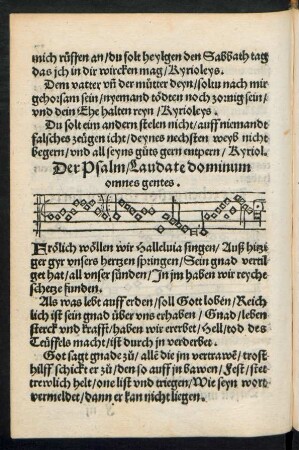 mich rüffen an/du solt heylgen den Sabbath tag
das ich in dir wircken mag/Kyrioleys.
Dem vatter vñ der mütter deyn/soltu nach mir
gehorsam sein/nyemand tödten noch zornig sein/
vnd dein Ehe halten reyn/Kyrioleys.
Du solt eim andern stelen nicht/auff niemandt
falsches zeügen icht/deynes nechsten weyb nicht
begern/vnd all seyns güts gern entpern/Kyriol.
Der Psalm/Laudate dominum
omnes gentes.
Frölich wöllen wir Halleluia singen/Auß hitzi
ger gyr vnsers hertzen springen/Sein gnad vertil
get hat/all vnser sünden/In jm haben wir reyche
schetze funden.
Als was lebt auff erden/soll Gott loben/Reich
lich ist sein gnad über vns erhaben/Gnad/leben
sterck vnd krafft/haben wir ererbet/Hell/tod des
Teüffels macht/ist durch in verderbet.
Got sagt gnade zů/alle die jm vertrawē/trost
hilff schickt er zů/den so auff in bawen/Fest/stet/
trewlich helt/one list vnd triegen/Wie seyn wort
vermeldet/dann er kan nicht liegen.